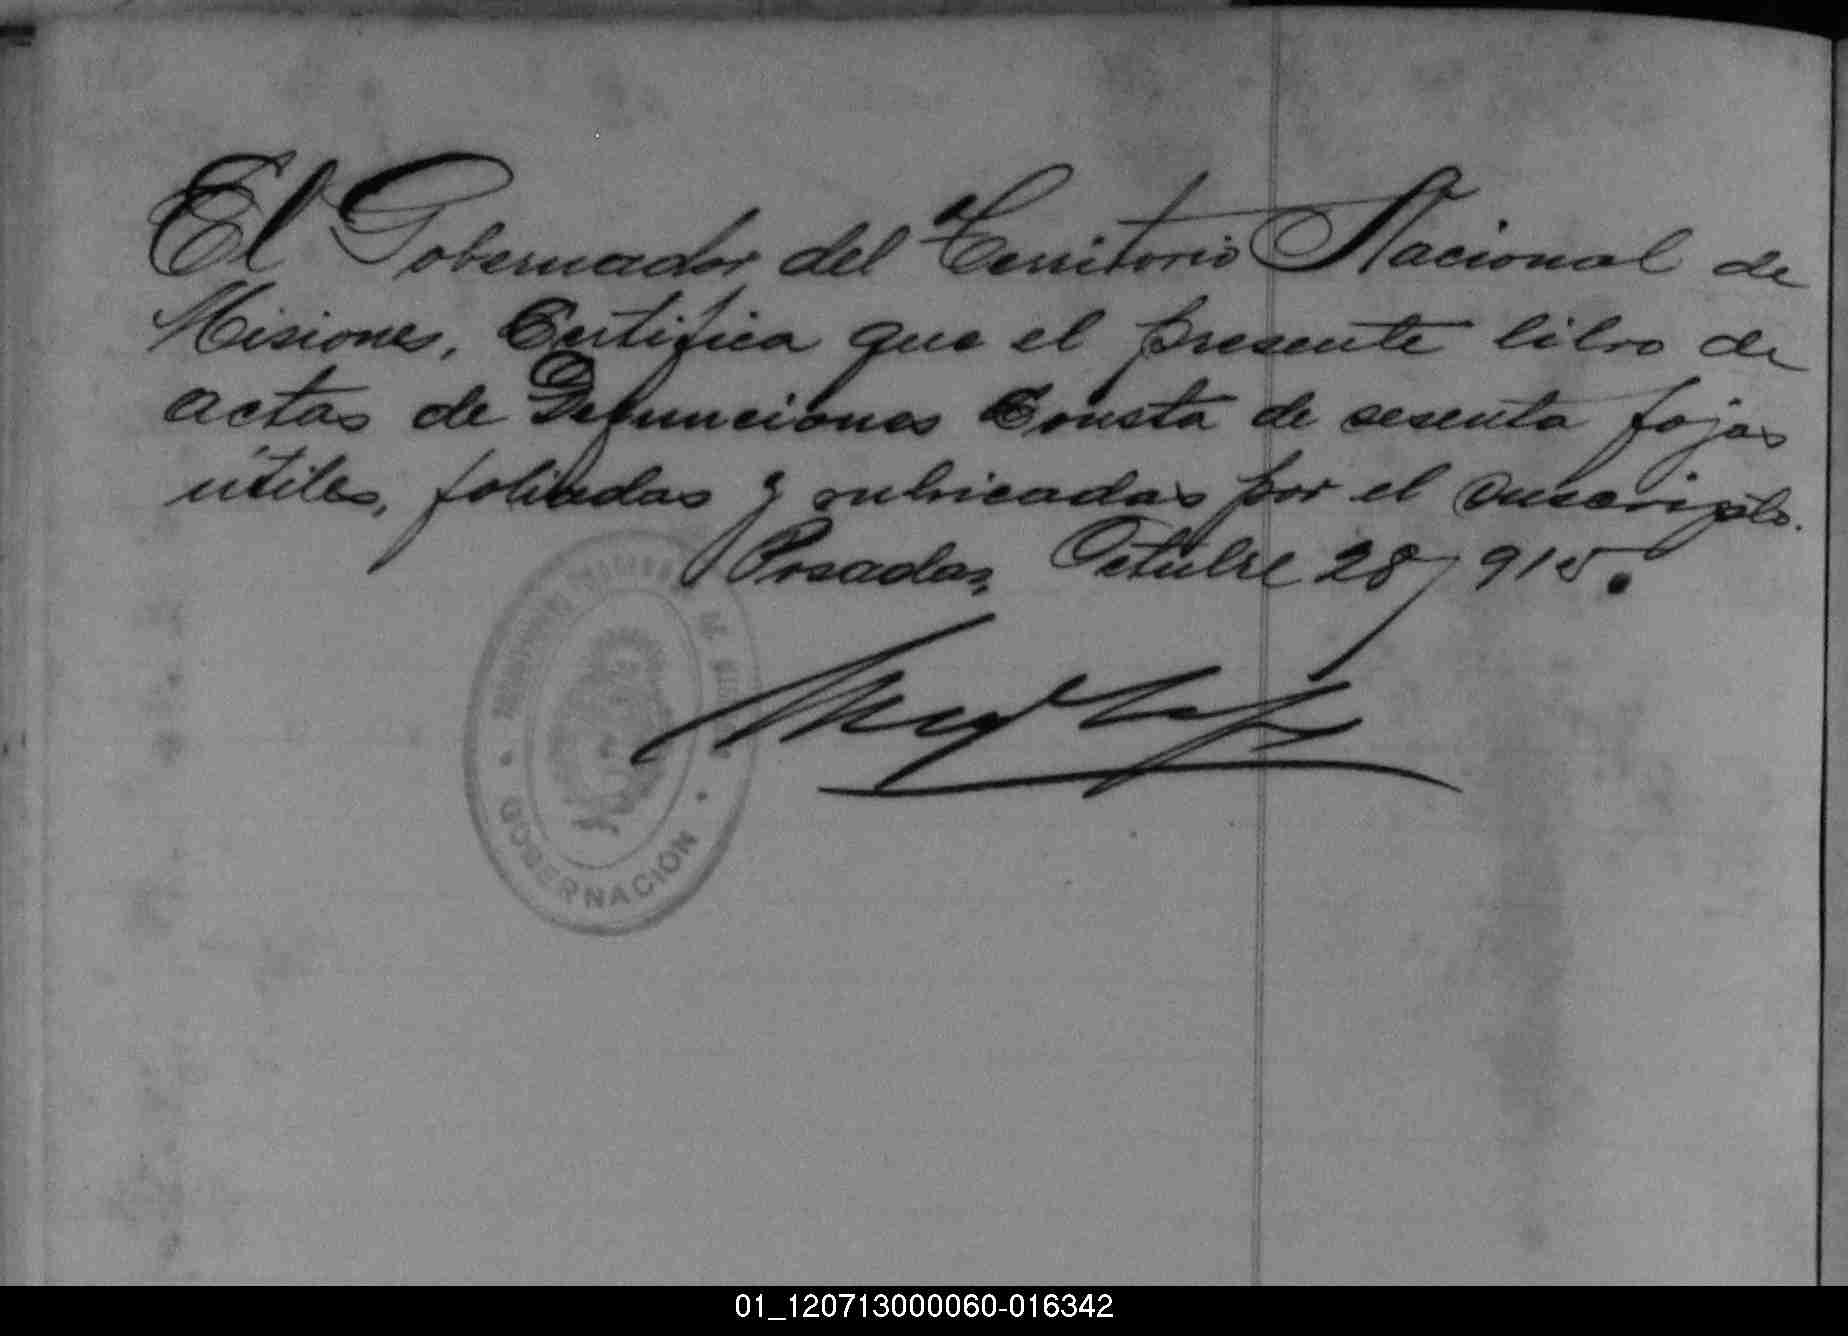 El Gobernador del Territorio Nacional de
Misiones, Certifica que el presente libro de
actas de Defunciones Consta de sesenta fojas
útiles, foliadas y rubricadas por el suscripto.
Posadas, Octubre 28/915.
GOBERNACION
01_120713000060-016342